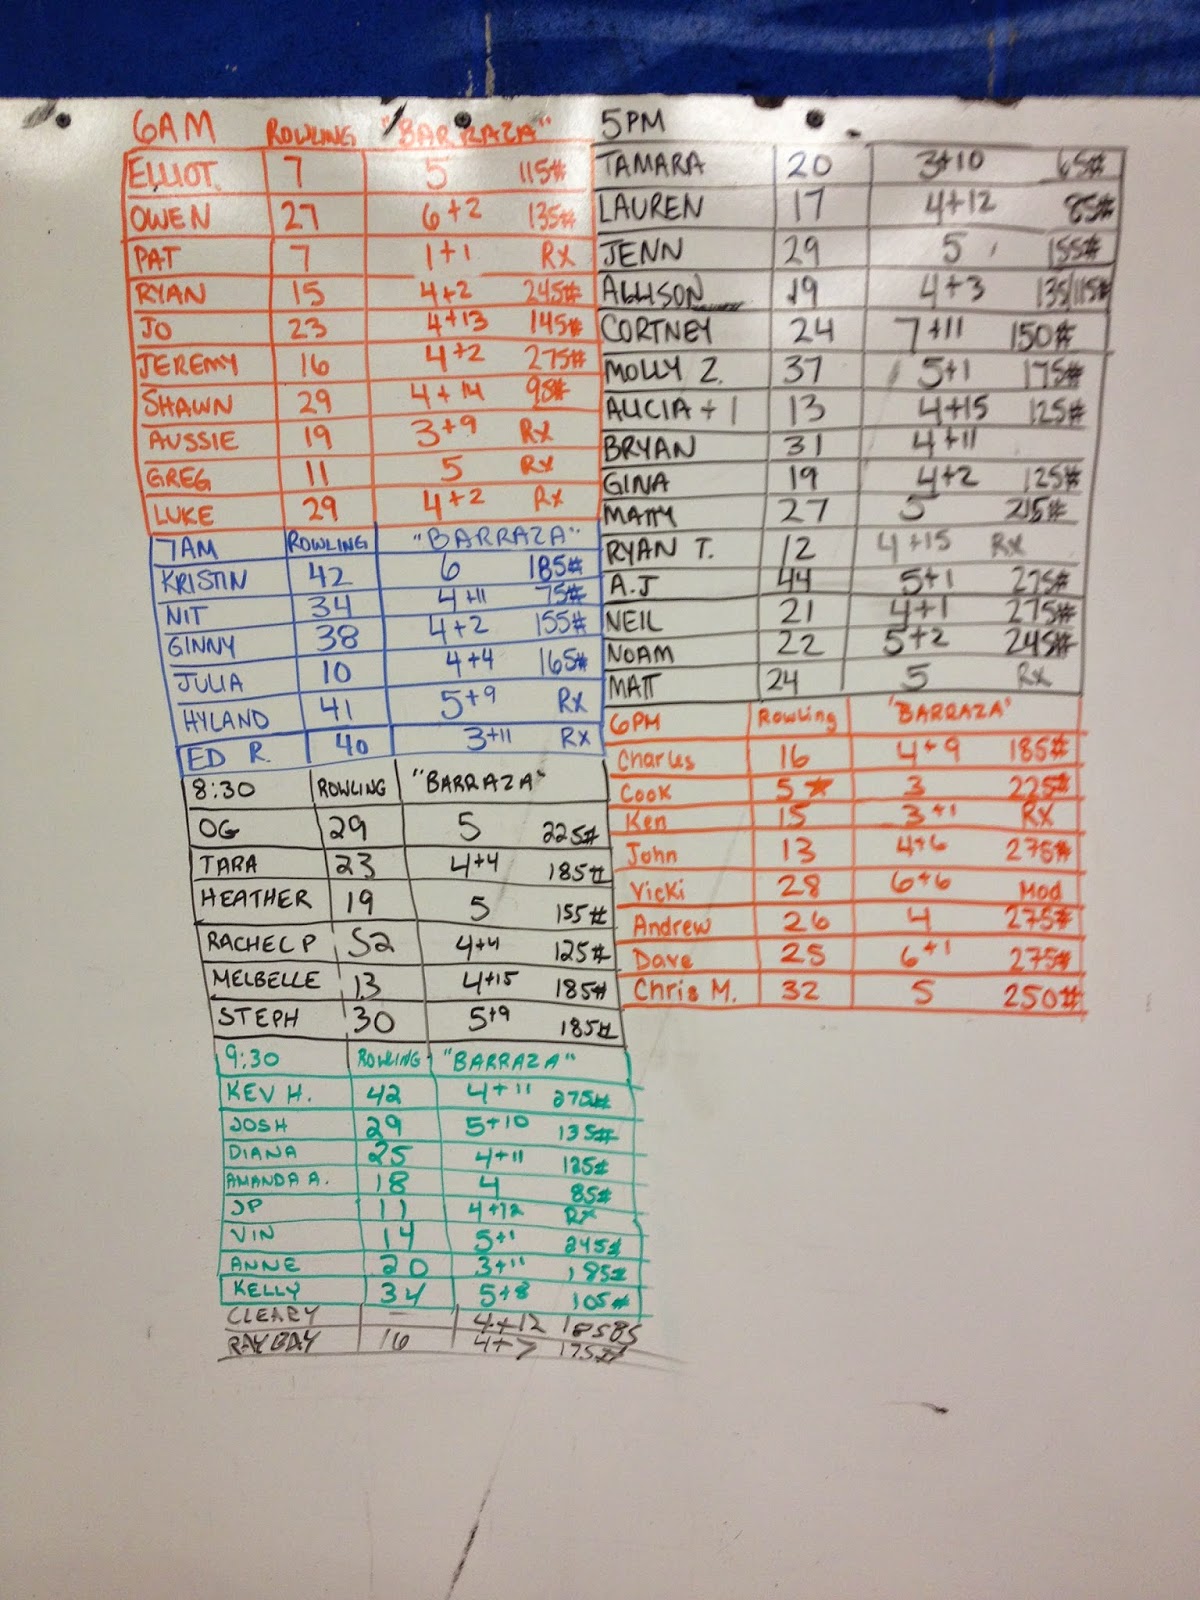 6AM ROWLING "BARRAZA"
ELLIOT 7 5 115#
OWEN 27 6+2 135#
PAT 7 1+1 RX
RYAN 15 4+2 245#
JO 23 4+13 145#
JEREMY 16 4+2 275#
SHAWN 29 4+14 95#
AUSSIE 19 3+9 RX
GREG 11 5 RX
LUKE 29 4+2 RX
7AM ROWLING "BARRAZA"
KRISTIN 42 6 185#
NIT 34 4+11 75#
GINNY 38 4+2 155#
JULIA 10 4+4 165#
HYLAND 41 5+9 RX
ED R. 40 3+11 RX
8:30 ROWLING "BARRAZA"
OG 29 5 225#
TARA 23 4+4 185#
HEATHER 19 5 155#
RACHEL P 52 4+4 125#
MELBELLE 13 4+15 185#
STEPH 30 5+9 185#
9:30 ROWLING "BARRAZA"
KEV H. 42 4+11 275#
JOSH 29 5+10 135#
DIANA 25 4+11 125#
AMANDA A. 18 4 85#
JP 11 4+12 RX
VIN 14 5+1 245#
ANNE 20 3+11 185#
KELLY 34 5+8 105#
CLEARY – 4+12 185
RAYBAY 16 4+7 175#
5PM
TAMARA 20 3+10 65#
LAUREN 17 4+12 85#
JENN 29 5 155#
ALLISON 19 4+3 135/115#
CORTNEY 24 7+11 150#
MOLLY Z. 37 5+1 175#
ALICIA + 1 13 4+15 125#
BRYAN 31 4+11
GINA 19 4+2 125#
MATTY 27 5 215#
RYAN T. 12 4+15 RX
A.J 44 5+1 275#
NEIL 21 4+1 275#
NOAM 22 5+2 245#
MATT 24 5 RX
6PM Rowling "BARRAZA"
Charles 16 4+9 185#
Cook 5★ 3 225#
Ken 15 3+1 RX
John 13 4+6 275#
Vicki 28 6+6 Mod
Andrew 26 4 275#
Dave 25 6+1 275#
Chris M. 32 5 250#